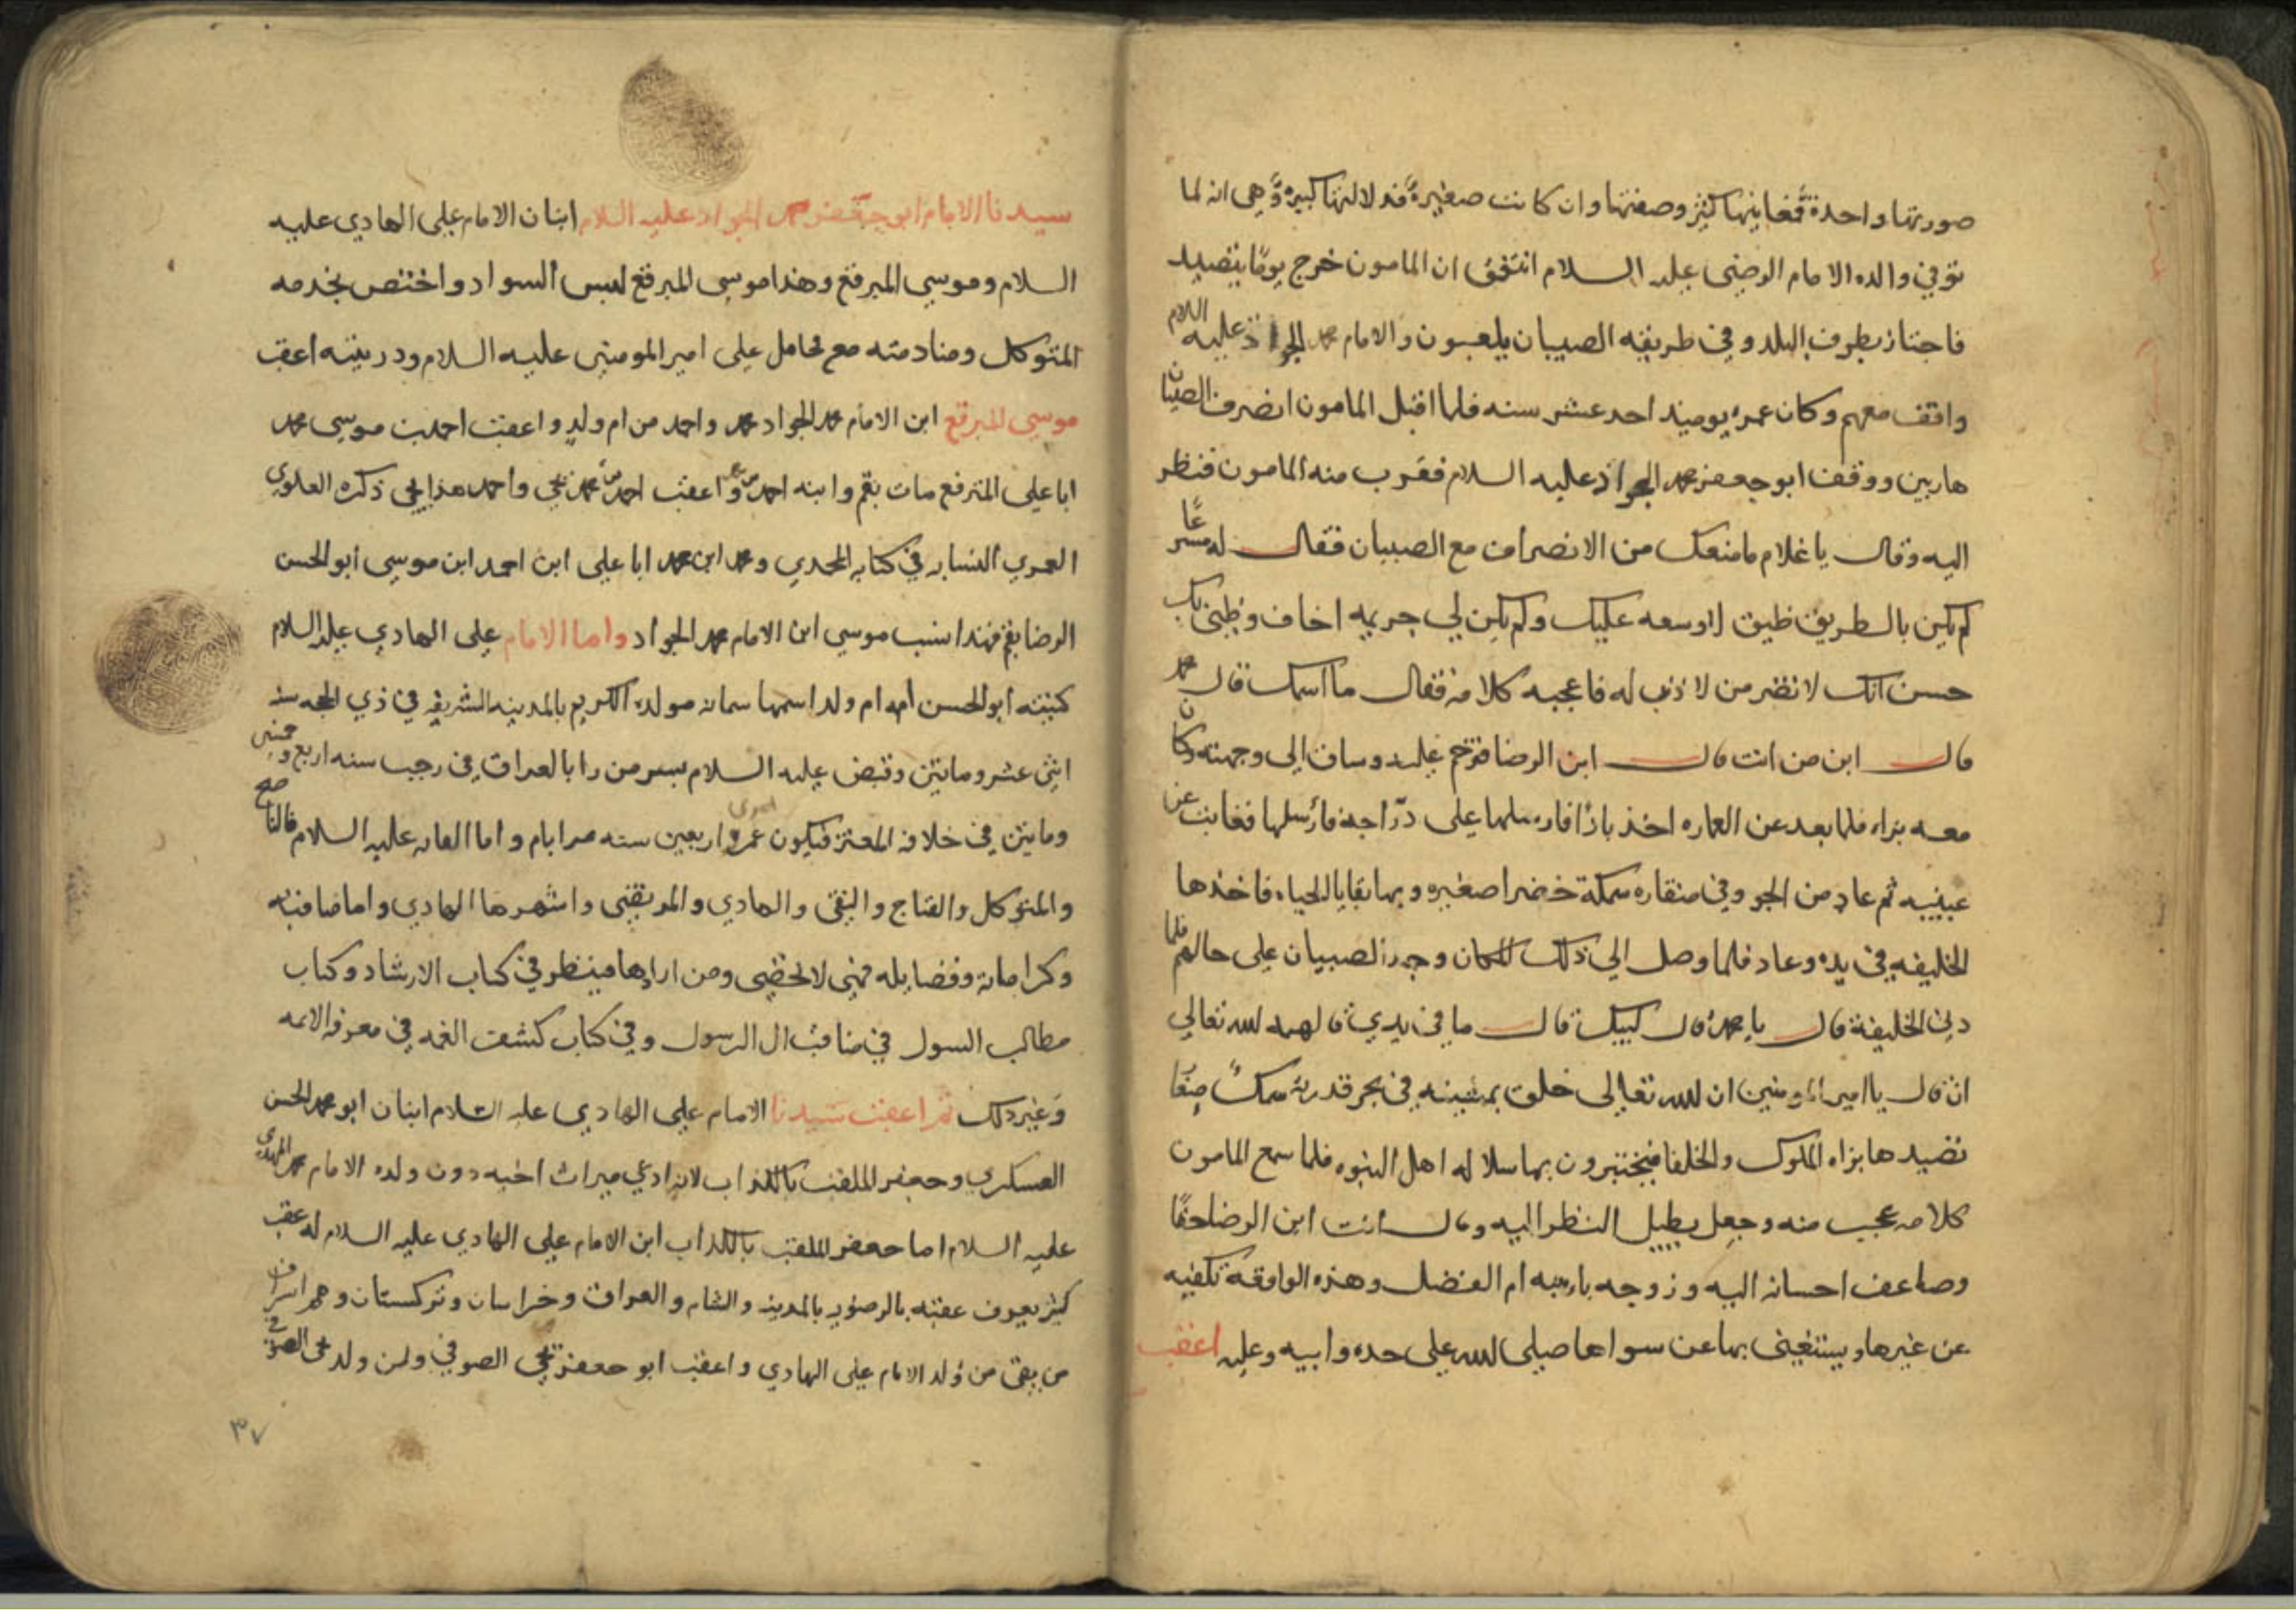 صورتها واحدة فمعانيها كثيره وصفتها وان كانت صغيرة فدلالتها كبيرة وهي انه لما
توفي والده الامام الرضى عليه السلام اتفق ان المامون خرج يوما يتصيد
فاجتاز بطرف البلد وفي طريقه الصبيان يلعبون والامام محمد الجواد عليه السلام
واقف معهم وكان عمره يوميذ احد عشر سنه فلما اقبل المامون انصرف الصبيان
هاربين ووقف ابو جعفر محمد الجواد عليه السلام فقرب منه المامون فنظر
اليه وقال يا غلام ما منعك من الانصراف مع الصبيان فقال له مسرعًا
لم يكن بالطريق ظيق لاوسعه عليك ولم يكن لي جريمه اخاف وظني بك
حسن انك لا تضر من لا ذنب له فاعجبه كلامه فقال ما اسمك قال محمد
قال ابن من انت قال ابن الرضا فترحم عليه وساق الى وجهته وكان
معه بزاه فلما بعد عن العماره اخذ بازا فارسلها على درّاجة فارسلها فغابت عن
عينيه ثم عاد من الجو وفي منقاره سمكة خضرا صغيره وبها بقايا الحياه فاخذها
الخليفه في يده وعاد فلما وصل الي ذلك المكان وجد الصبيان على حالهم فلما
دنى الخليفة قال يا محمد قال لبيك قال ما في يدي قالهمه الله تعالي
ان قال يا امير المومنين ان الله تعالى خلق بمشيته في بحر قدرته سمكًا صغًا
تصيدها بزاه الملوك والخلفا فيختبرون بها سلاله اهل النبوه فلما سمع المامون
كلامه عجب منه وجعل يطيل النظر اليه وقال انت ابن الرضا حقًا
وضاعف احسانه اليه وزوجه بابنته ام الفضل وهذه الواقعة تكفيه
عن غيرها ويستغني بها عن سواها صلى الله على جده وابيه وعليه اعقب
سيدنا الامام ابو جعفر محمد الجواد عليه السلام ابنان الامام على الهادي عليه
السلام وموسى المبرقع وهذا موسى المبرقع لبس السواد واختص بخدمه
المتوكل ومنادمته مع تحامل على امير المومنين عليه السلام وذريته اعقب
موسى المبرقع ابن الامام محمد الجواد محمد واحمد من ام ولد واعقب احمد بن موسى محمد
ابا على المترفع مات بقم وابنه احمد واعقب احمد من محمد يحي واحمد هذا يحي ذكره العلوي
العمري النسابه في كتابه المجدي ومحمد ابن محمد ابا على ابن احمد ابن موسى ابو الحسن
الرضا بقم فهذا نسب موسى ابن الامام محمد الجواد واما الامام على الهادي عليه السلام
كنيته ابو الحسن امه ام ولد اسمها سمانه مولده الكريم بالمدينه الشريفه في ذي الحجه سنه
اثني عشر وماتين وقبض عليه السلام بسر من را بالعراق في رجب سنه اربع وخمسين
وماتين في خلافه المعتز فيكون عمره اربعين سنه ايام واما القابه عليه السلام فالناصح
والمتوكل والفتاح والنقي والهادي والمرتضى واشهرها الهادي واما مناقبه
وكراماته وفضايله فهي لا تحصى ومن ارادها فينظر في كتاب الارشاد وكتاب
مطالب السول في مناقب ال الرسول وفي كتاب كشف الغمه في معرفه الايمه
وغير ذلك ثم اعقب سيدنا الامام علي الهادي عليه السلام ابنان ابو محمد الحسن
العسكري وجعفر الملقب بالكذاب لانه ادعي ميراث اخيه دون ولده الامام محمد المهدي
عليه السلام اما جعفر الملقب بالكذاب ابن الامام على الهادي عليه السلام له عقب
كثير يعرف عقبه بالرضوي بالمدينه والشام والعراق وخراسان وتركستان وهم اشراف
من بقى من ولد الامام على الهادي واعقب ابو جعفر يحي الصوفي ولمن ولد يحي الصوفي
٣٧